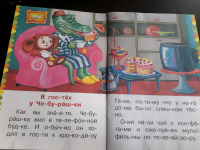 В гос-тях
у Че-бу-раш-ки
Как вы зна-е-те, Че-бу-
раш-ка жил в те-ле-фон-ной
буд-ке. И о-быч-но он хо-
дил в гос-ти к кро-ко-ди-лу
Ге-не, по-то-му что у не-го
до-ма бы-ло слиш-ком тес-
но.
О-ни пи-ли чай с кон-фе-
та-ми и смо-тре-ли муль-
фильмы по те-ле-ви-зо-ру.